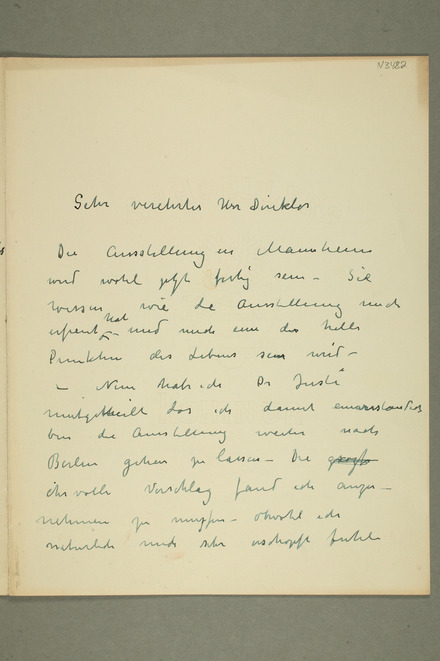 N3482
Sehr verehrter Herr Direktor
Die Ausstellung in Mannheim
wird wohl jetzt fertig sein – Sie
wissen wie die Ausstellung mich
erfreut hat – und mich einer der helle
Punkten des Lebens sein wird –
– Nun hab ich Dr Justi
mitgetheilt das ich damit einverstanden
bin die Ausstellung weiter nach
Berlin gehen zu lassen – Die
ehrvolle Vorschlag fand ich ange-
nehmen zu müssen – obwohl ich
natürlich mich sehr erschöpft fühle